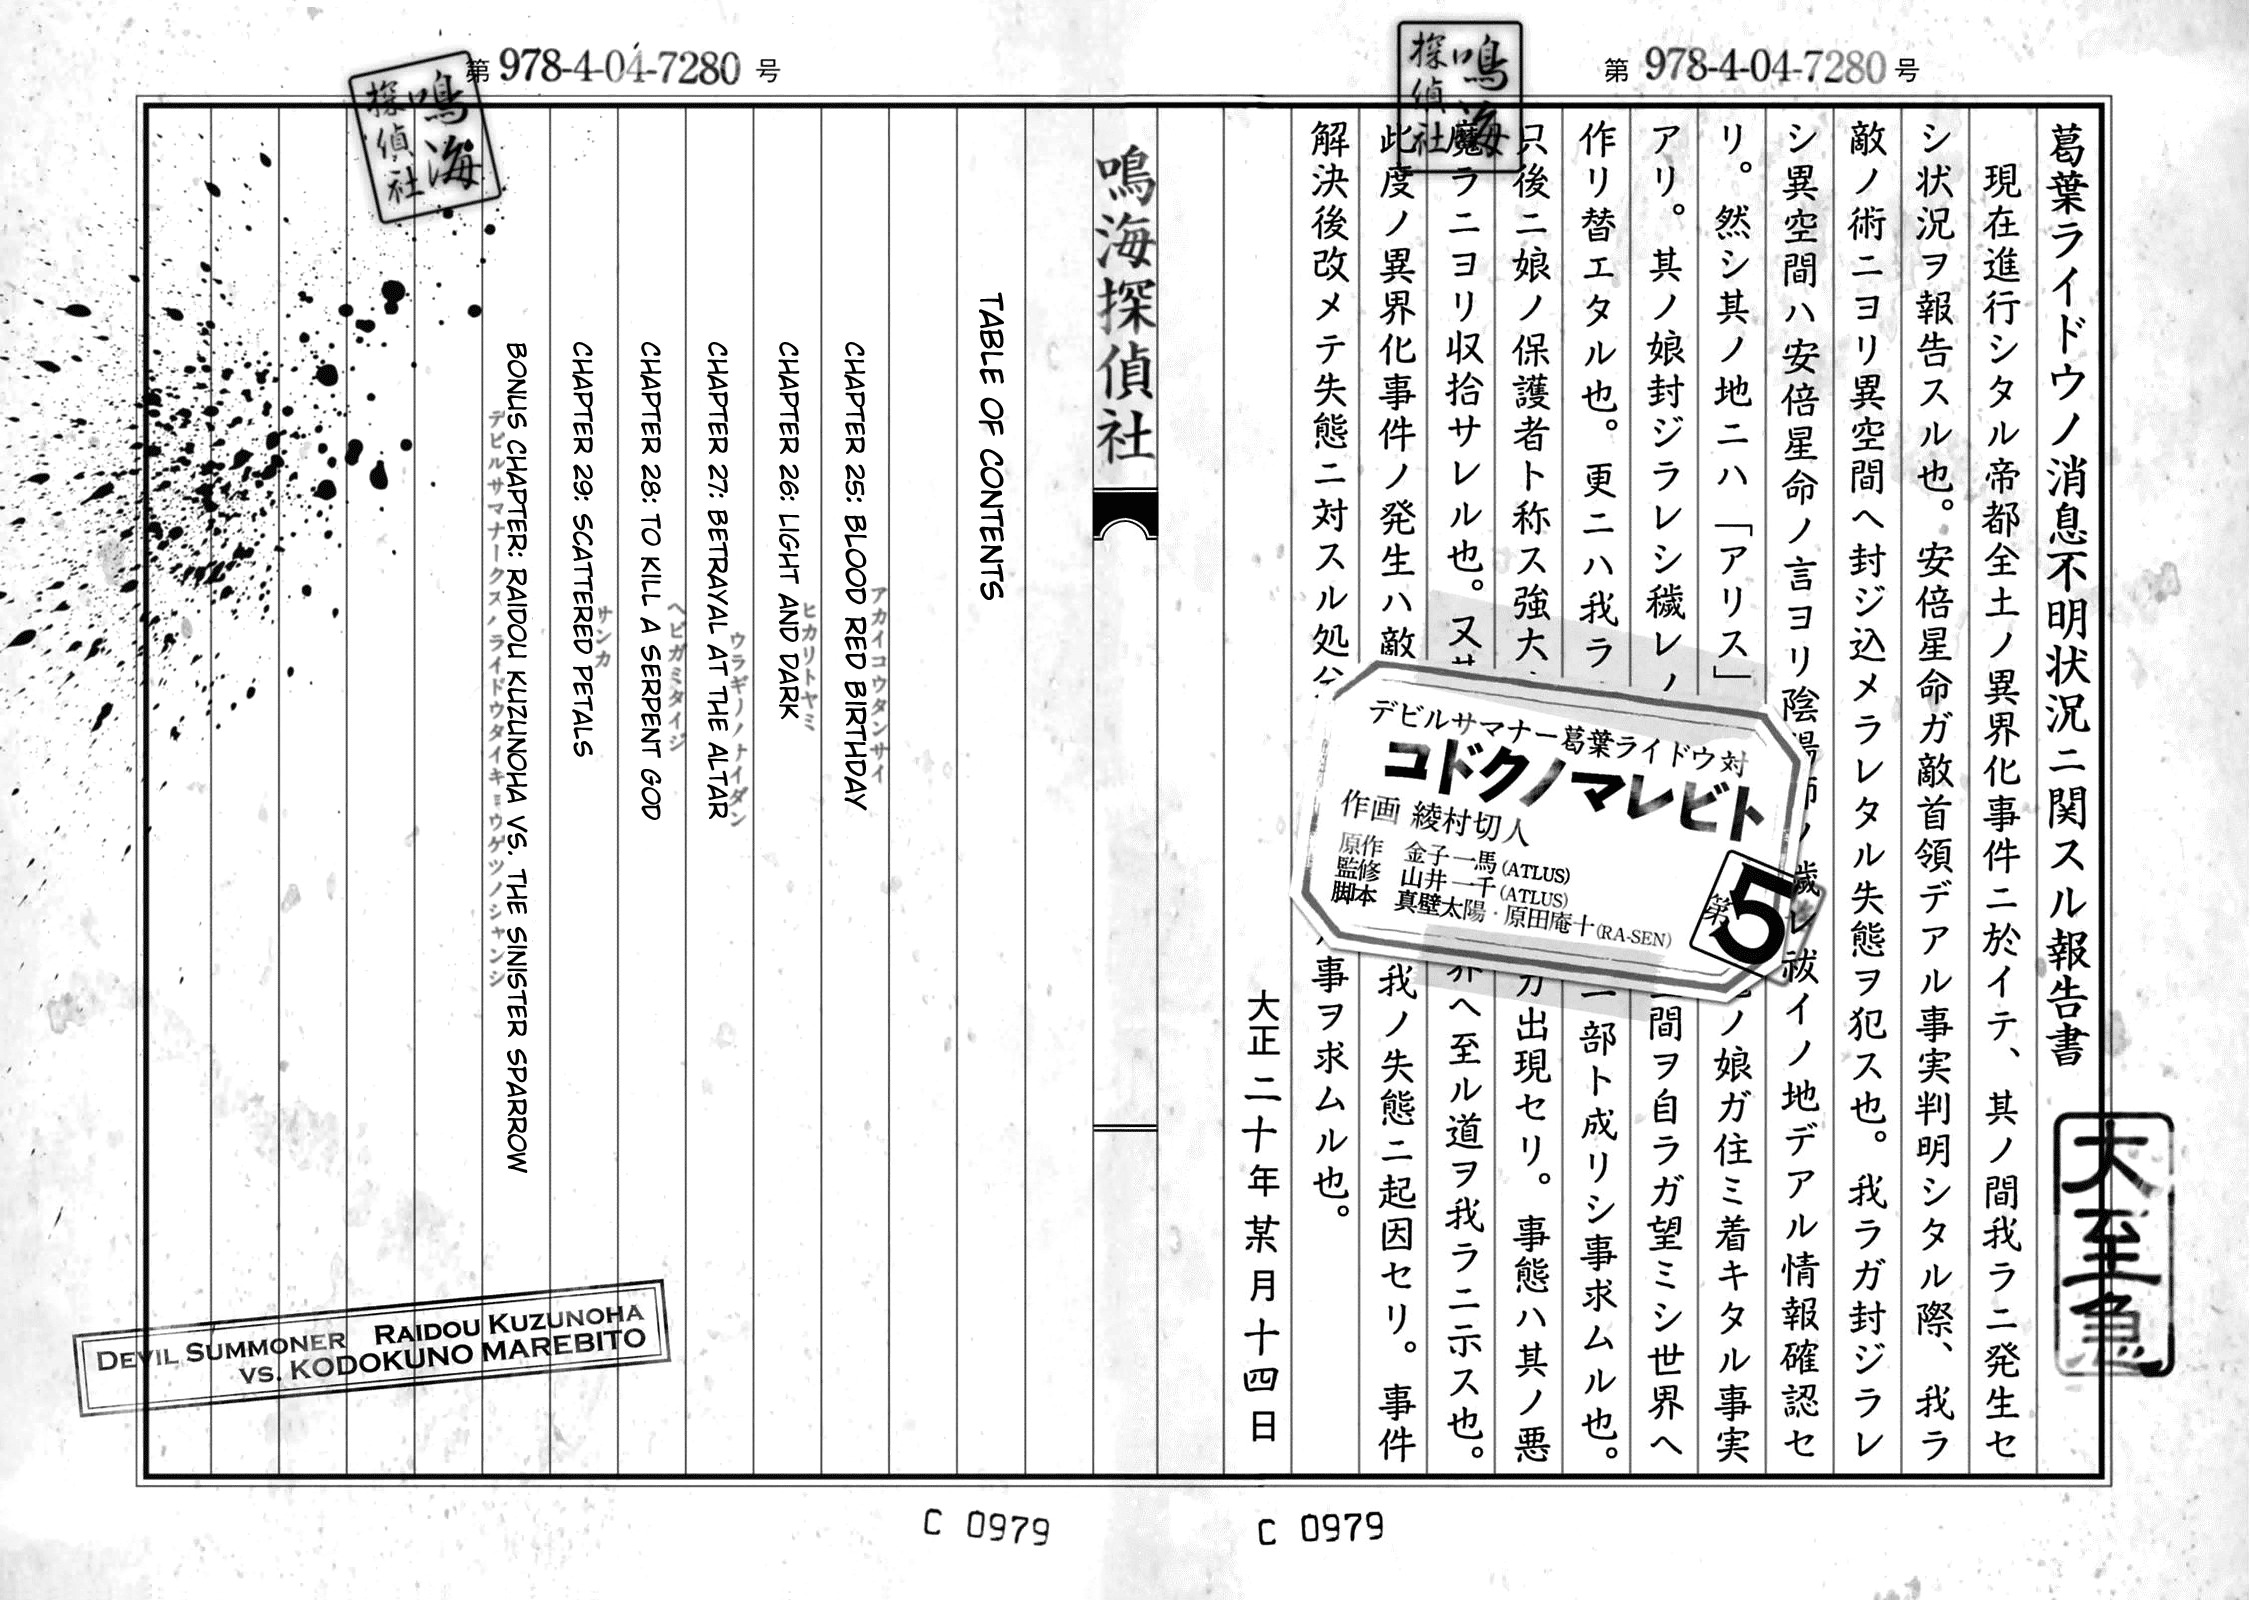 第 978-4-04-7280 号
鳴海
探偵社
葛葉ライドウノ消息不明状況ニ関スル報告書
大至急
現在進行シタル帝都全土ノ異界化事件ニ於イテ、其ノ間我ラニ発生セ
シ状況ヲ報告スル也。安倍星命ガ敵首領デアル事実判明シタル際、我ラ
敵ノ術ニヨリ異空間ヘ封ジ込メラレタル失態ヲ犯ス也。我ラガ封ジラレ
シ異空間ハ安倍星命ノ言ヨリ陰陽師ノ歳レ祓イノ地デアル情報確認セ
リ。然シ其ノ地ニハ「アリス」ノ娘ガ住ミ着キタル事実
アリ。其ノ娘封ジラレシ穢レノ間ヲ自ラガ望ミシ世界ヘ
作リ替エタル也。更ニハ我ラ一部ト成リシ事求ムル也。
只後ニ娘ノ保護者ト称ス強大ガ出現セリ。事態ハ其ノ悪
魔ラニヨリ収拾サレル也。又其界ヘ至ル道ヲ我ラニ示ス也。
此度ノ異界化事件ノ発生ハ敵我ノ失態ニ起因セリ。事件
解決後改メテ失態ニ対スル処分事ヲ求ムル也。
大正二十年某月十四日
デビルサマナー葛葉ライドウ対
コドクノマレビト
作画 綾村切人
原作 金子一馬(ATLUS)
監修 山井一千(ATLUS)
脚本 真壁太陽・原田庵十(RA-SEN)
第5
C 0979
第 978-4-04-7280 号
鳴海
探偵社
鳴海探偵社
TABLE OF CONTENTS
アカイコウタンサイ
CHAPTER 25: BLOOD RED BIRTHDAY
ヒカリトヤミ
CHAPTER 26: LIGHT AND DARK
ウラギリノナイダン
CHAPTER 27: BETRAYAL AT THE ALTAR
ヘビガミタイジ
CHAPTER 28: TO KILL A SERPENT GOD
サンカ
CHAPTER 29: SCATTERED PETALS
BONUS CHAPTER: RAIDOU KUZUNOHA VS. THE SINISTER SPARROW
デビルサマナークズノハライドウタイキョウゲツノシャンシ
DEVIL SUMMONER RAIDOU KUZUNOHA
VS. KODOKUNO MAREBITO
C 0979